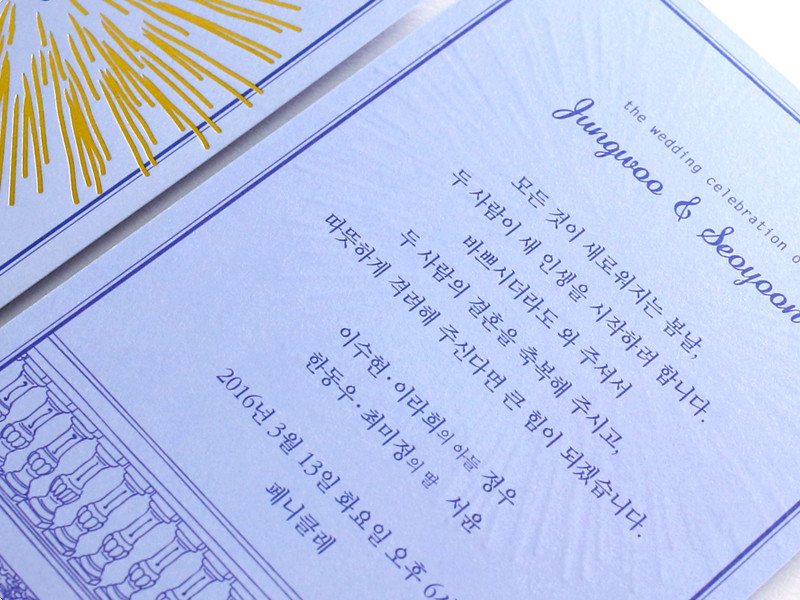 the wedding celebration o
Jungwoo & Seoyoon
모든 것이 새로워지는 봄날,
두 사람이 새 인생을 시작하려 합니다.
바쁘시더라도 와 주셔서
두 사람의 결혼을 축복해 주시고,
따뜻하게 격려해 주신다면 큰 힘이 되겠습니다.
이수현·이라희의 아들 정우
한동우·최미정의 딸 서윤
2016년 3월 13일 화요일 오후 6시
페니클레